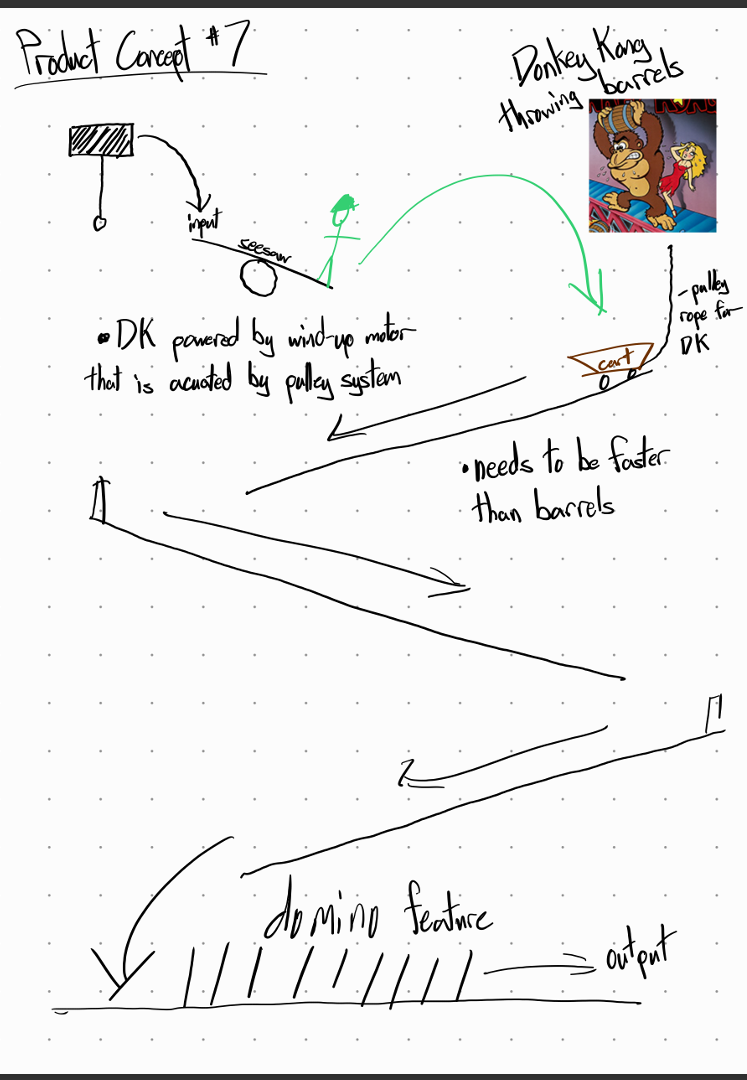 Product Concept #7
Donkey Kong
throwing barrels
KONG
input
seesaw
- pulley
rope for
DK
• DK powered by wind-up motor
that is acuated by pulley system
cart
• needs to be faster
than barrels
domino feature
output